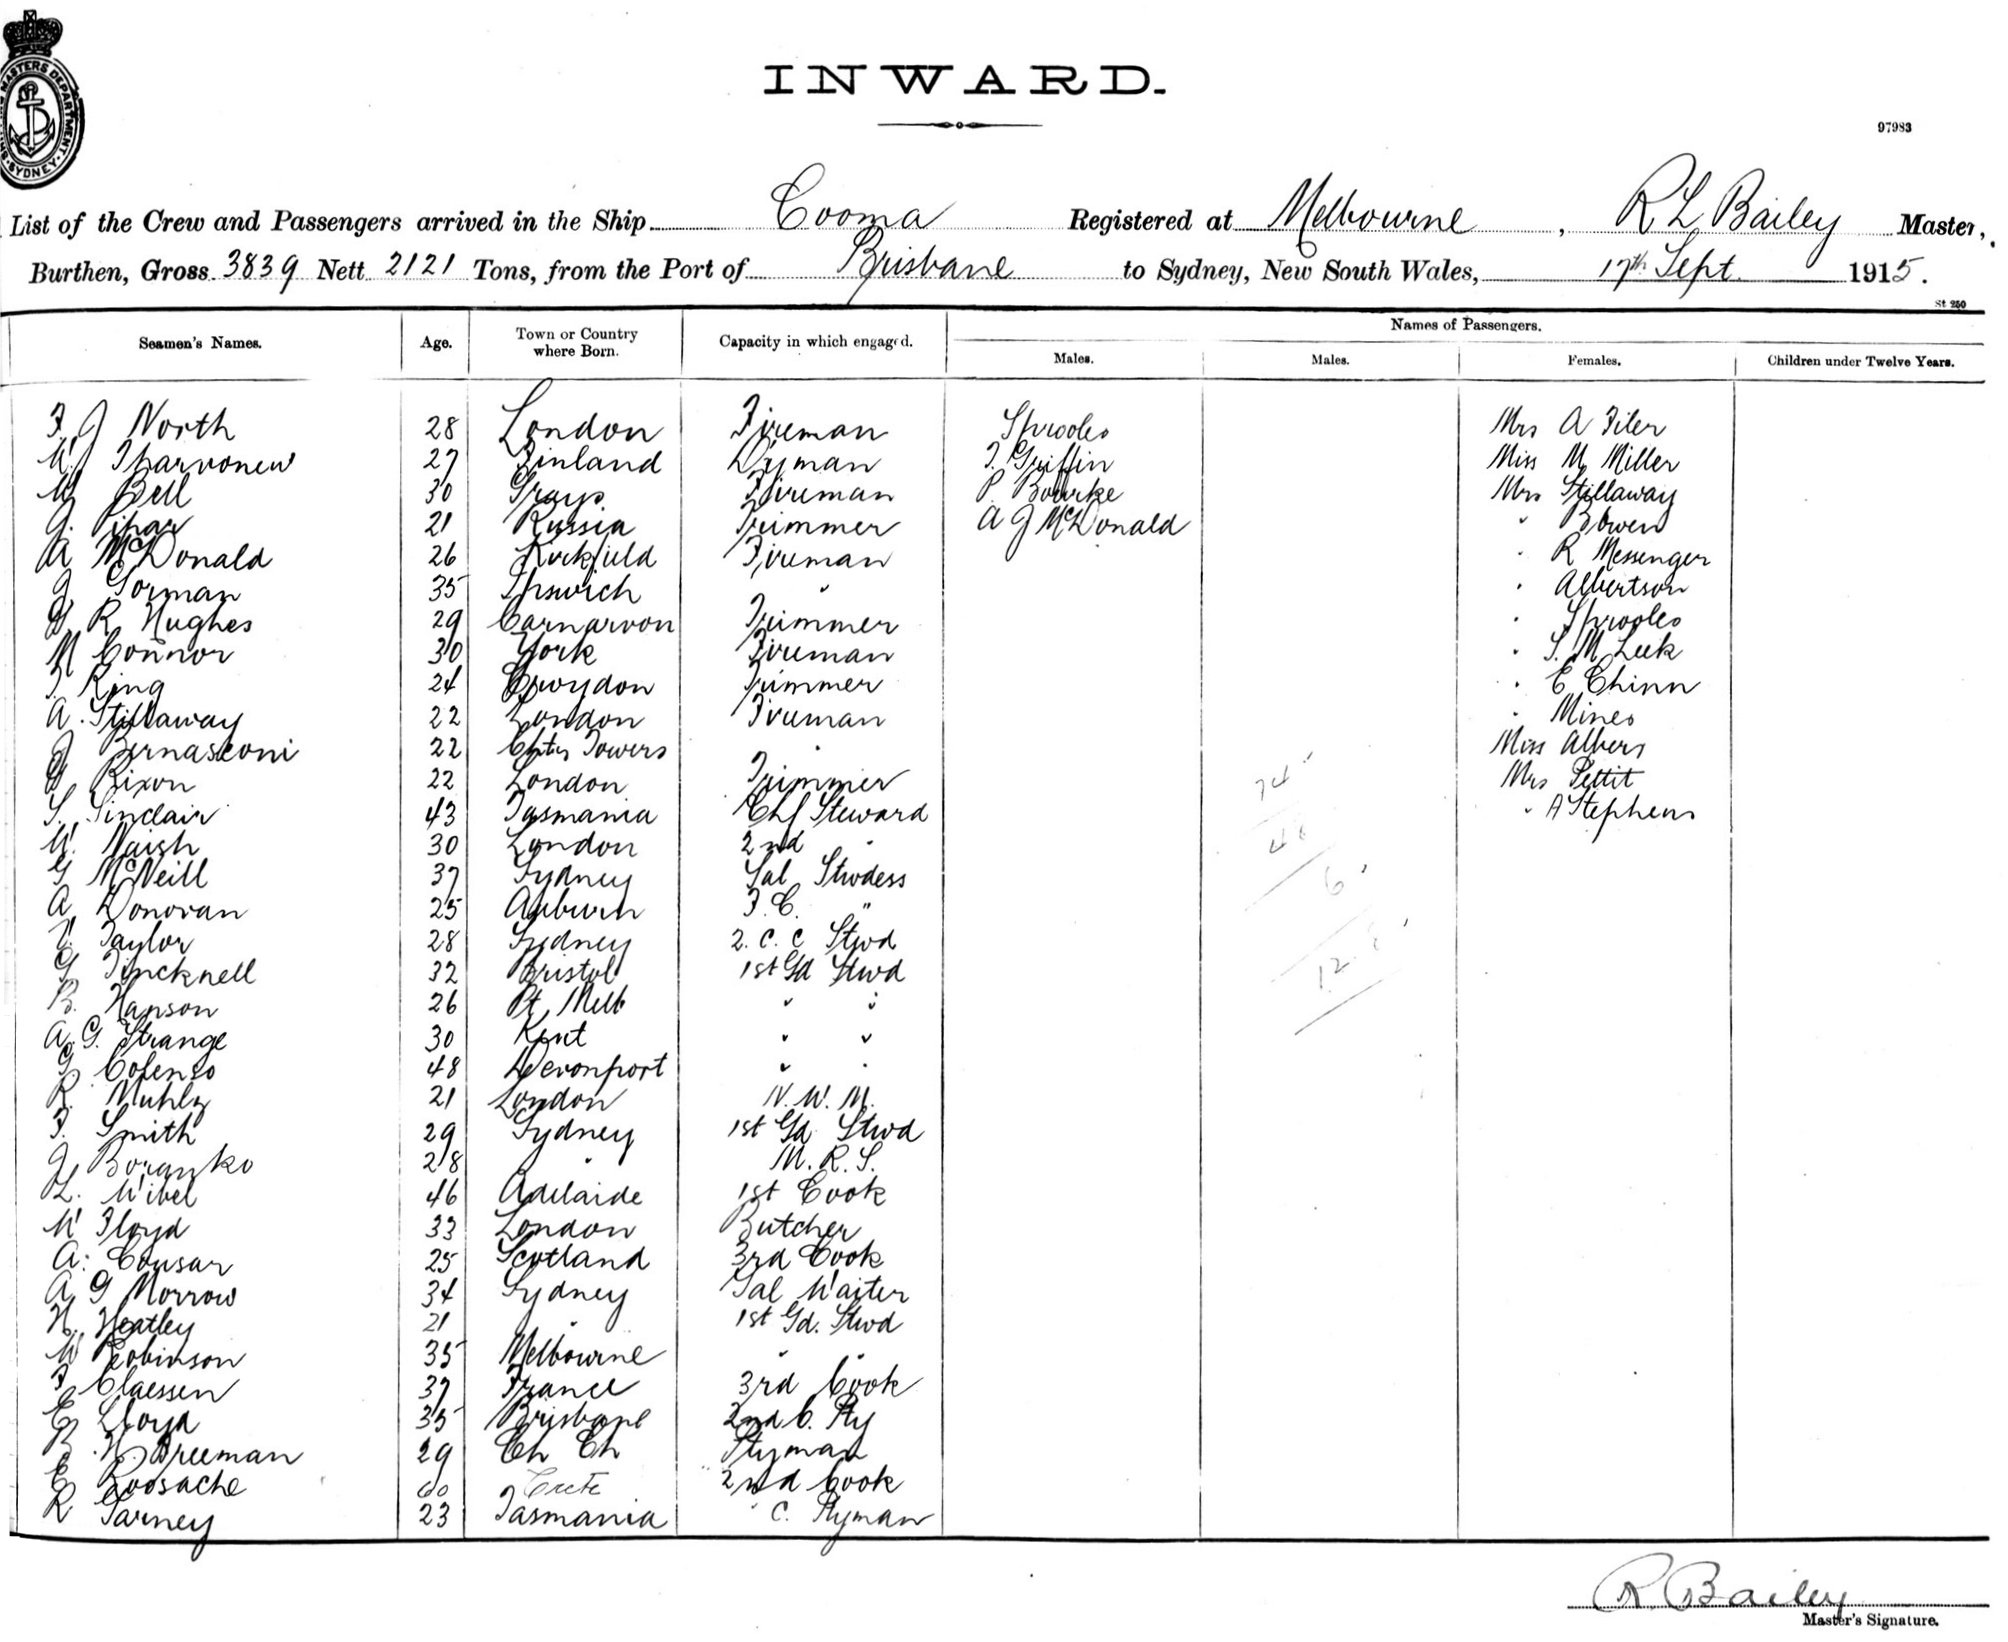 SYDNEY
INWARD.
97983
List of the Crew and Passengers arrived in the Ship Cooma Registered at Melbourne, R L Bailey Master,
Burthen, Gross 3839 Nett 2121 Tons, from the Port of Brisbane to Sydney, New South Wales, 17th Sept 1915.
St 250
Seamen's Names. Age. Town or Country where Born. Capacity in which engaged. Names of Passengers.
Males. Males. Females. Children under Twelve Years.
F J North 28 London Fireman Sprooles Mrs A Filer
W 27 Finland Dyman T. Griffin Miss M Miller
W Bell 30 Grays Fireman P. Bourke Mrs Stillaway
J. 21 Russia Trimmer A J McDonald " Bowen
A McDonald 26 Kirkfield Fireman " R Messenger
J Gorman 35 Ipswich " " Albertson
G R Hughes 29 Carnarvon Trimmer " Sprooles
M Connor 30 York Fireman " S. M Leek
F King 24 Croydon Trimmer " E Chinn
A. Stillaway 22 London Fireman " Mines
J Bernasconi 22 Chtrs Towers " Miss Albers
G Rixon 22 London Trimmer Mrs Pettit
S. Sinclair 43 Tasmania Chf Steward " A Stephens
W. Naish 30 London 2nd "
G McNeill 37 Sydney Sal Stwdess
A Donovan 25 Auburn F.C. "
Taylor 28 Sydney 2. C. C Stwd
G Tincknell 32 Bristol 1st Gd Stwd
B. Hanson 26 Pt Melb " "
A. G. Strange 30 Kent " "
G Colenso 48 Devonport " "
R. 21 London N. W. M.
F. Smith 29 Sydney 1st Gd Stwd
J 28 " M. R. S.
L. Wibel 46 Adelaide 1st Cook
W Floyd 33 London Butcher
A. Cousar 25 Scotland 3rd Cook
A G Morrow 34 Sydney Sal Waiter
H. Heatley 21 " 1st Gd. Stwd
W Robinson 35 Melbourne " "
F Claessen 37 France 3rd Cook
E Lloyd 35 Brisbane 2nd C. Ply
B. H. Freeman 29 Ch Ch Plyman
E Roosache 60 Crete 2nd Cook
R Tarney 23 Tasmania C. Plyman
R. Bailey
Master's Signature.